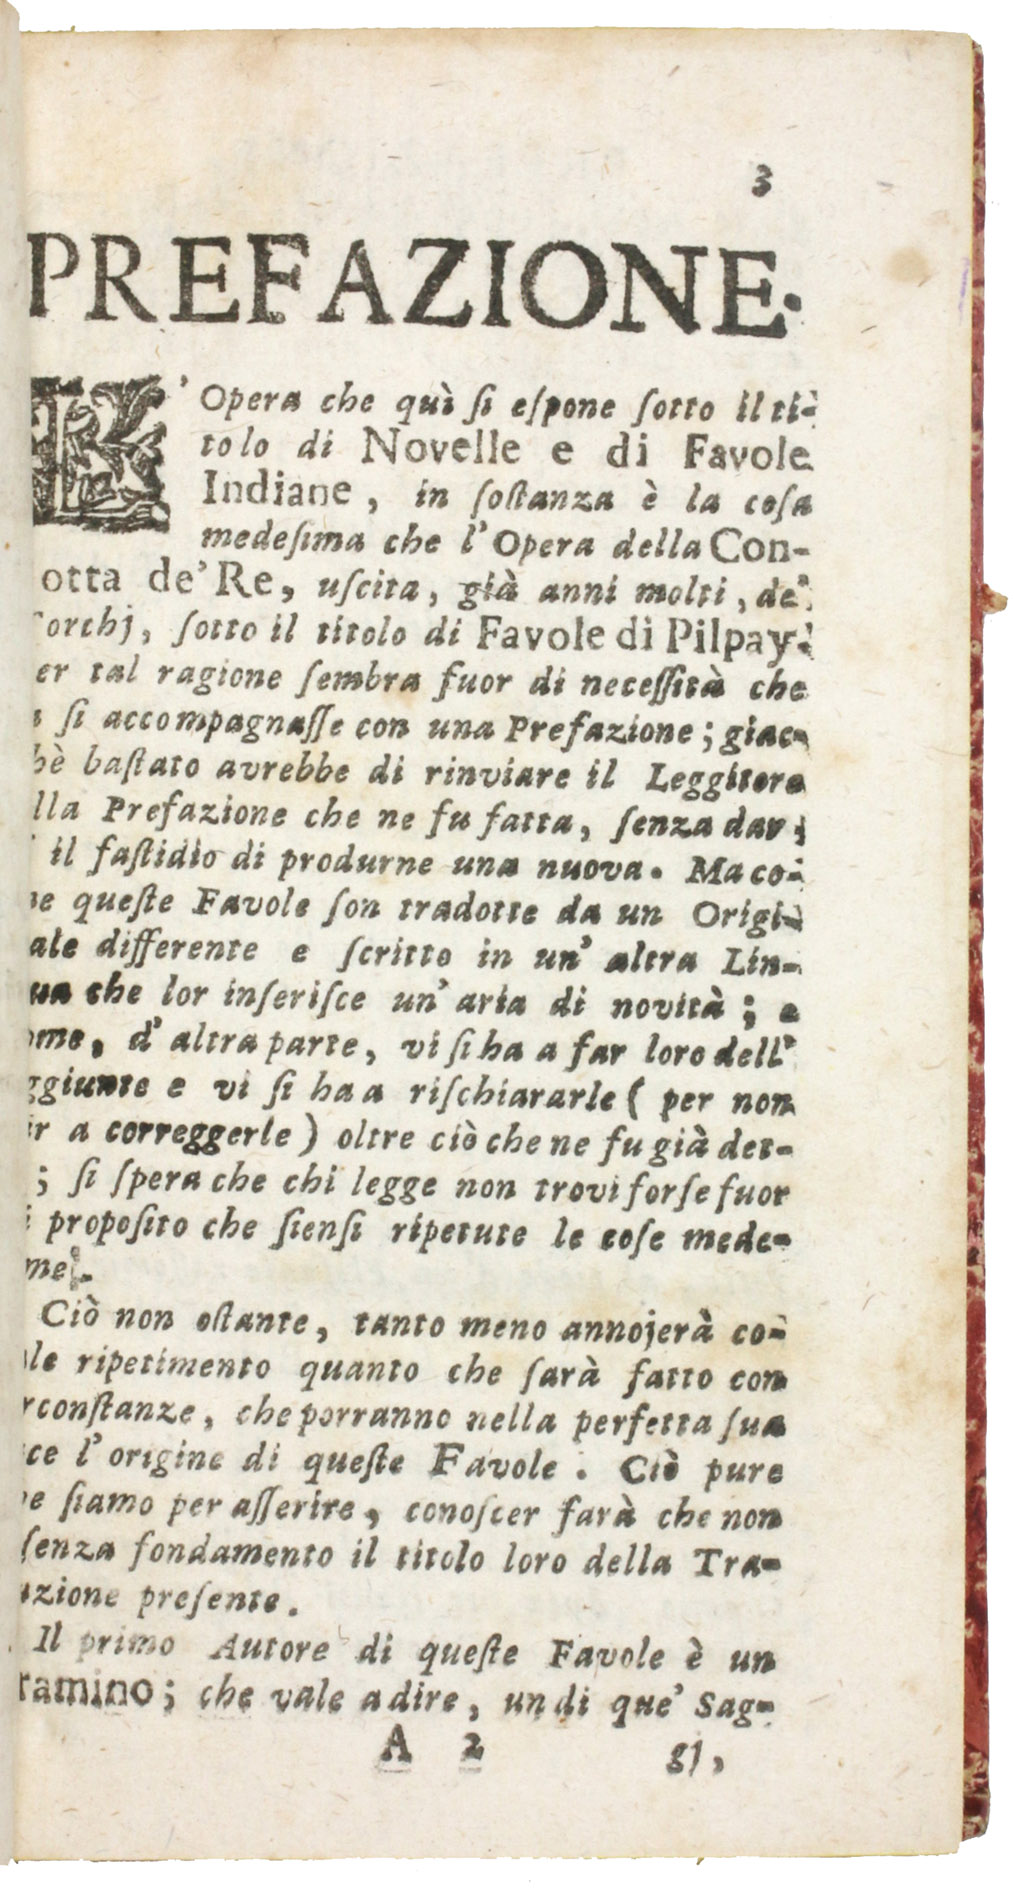 3
PREFAZIONE.
L'Opera che quì ſi eſpone ſotto il ti-
tolo di Novelle e di Favole
Indiane, in ſoſtanza è la coſa
medeſima che l'Opera della Con-
otta de' Re, uſcita, già anni molti, de'
Torchj, ſotto il titolo di Favole di Pilpay.
er tal ragione ſembra fuor di neceſſità che
ſi accompagnaſſe con una Prefazione; giac-
hè baſtato avrebbe di rinviare il Leggitore
lla Prefazione che ne fu fatta, ſenza dar
il faſtidio di produrne una nuova. Ma co-
ne queſte Favole ſon tradotte da un Origi-
ale differente e ſcritto in un' altra Lin-
ua che lor inſeriſce un' aria di novità; e
ome, d' altra parte, vi ſi ha a far loro dell'
ggiunte e vi ſi ha a riſchiararle ( per non
ir a correggerle ) oltre ciò che ne fu già det-
; ſi ſpera che chi legge non trovi forſe fuor
i propoſito che ſienſi ripetute le coſe mede-
me.
Ciò non oſtante, tanto meno annojerà co-
le ripetimento quanto che ſarà fatto con
rconſtanze, che porranno nella perfetta ſua
ce l' origine di queſte Favole. Ciò pure
e ſiamo per aſſerire, conoſcer farà che non
ſenza fondamento il titolo loro della Tra-
zione preſente.
Il primo Autore di queſte Favole è un
ramino; che vale a dire, un di que' Sag-
A 2 gj,